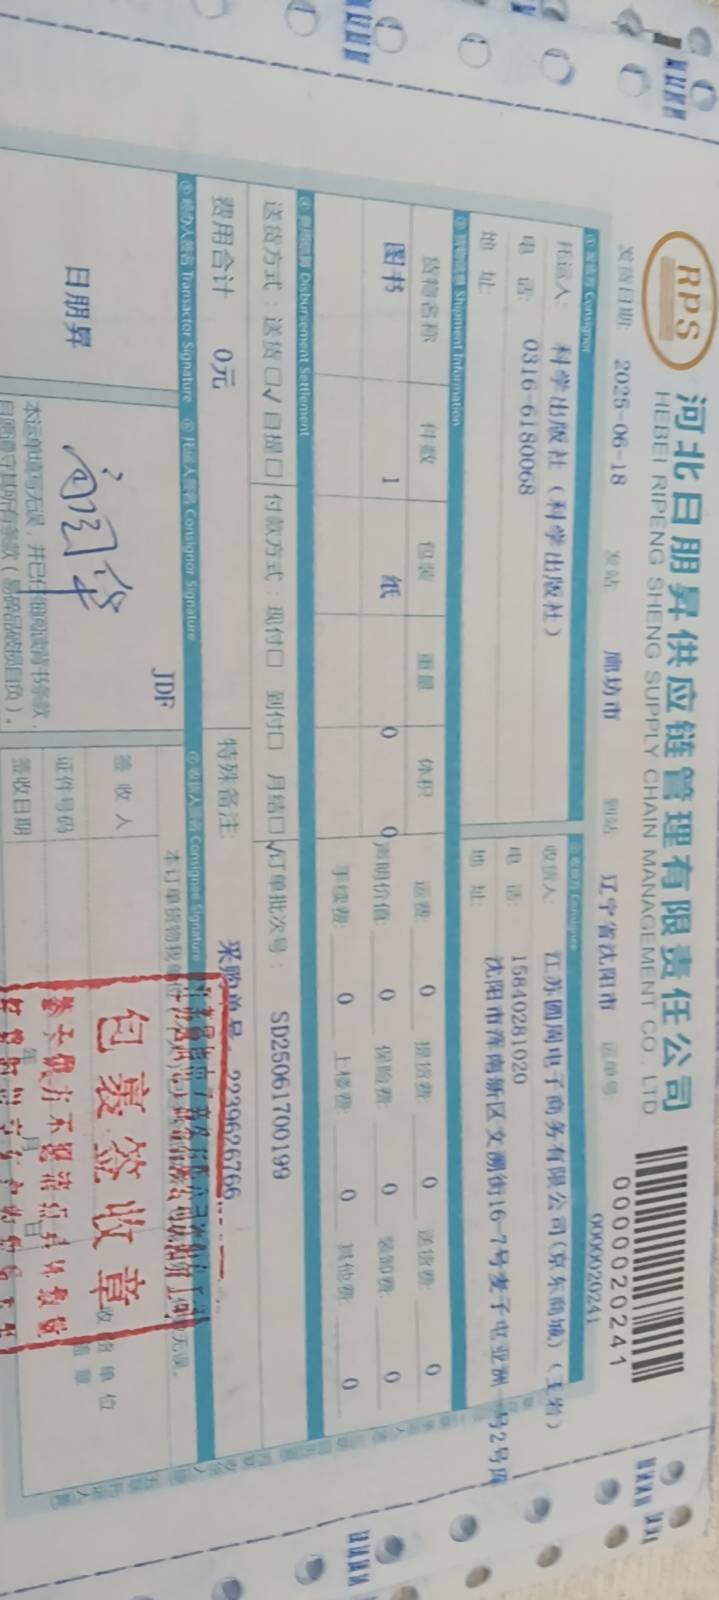 RPS
河北日朋昇供应链管理有限责任公司
HEBEI RIPENG SHENG SUPPLY CHAIN MANAGEMENT CO., LTD
0000020241
发货日期: 2025-06-18 发站: 廊坊市 到站: 辽宁省沈阳市 运单号: 0000020241
① 发货方 Consignor
托运人: 科学出版社（科学出版社）
电 话: 0316-6180068
地 址:
收货人: 江苏圆周电子商务有限公司(京东商城)（王岩）
电 话: 15840281020
地 址: 沈阳市浑南新区文溯街16-7号麦子屯亚洲一号2号库
③ 货物信息 Shipment Information
货物名称 件数 包装 重量 体积
图书 1 纸 0 0
运费: 0 提货费: 0 送货费: 0
声明价值: 0 保险费: 0 装卸费: 0
手续费: 0 上楼费: 0 其他费: 0
④ 费用结算 Disbursement Settlement
送货方式：送货□√自提□ 付款方式：现付□ 到付□ 月结□√订单批次号： SD25061700199
费用合计 0元
特殊备注: 采购单号 2239626766
⑤ 经办人签名 Transactor Signature
⑥ 托运人签名 Consignor Signature
⑦ 收货人签名 Consignee Signature
日朋昇
JDF
本运单填写无误，并已仔细阅读背书条款，
自愿遵守其所有条款（易碎品破损自负）。
本订单货物我单位
无误。
签 收 人
证件号码
签收日期
年 月 日
单 位
盖 章
包裹签收章